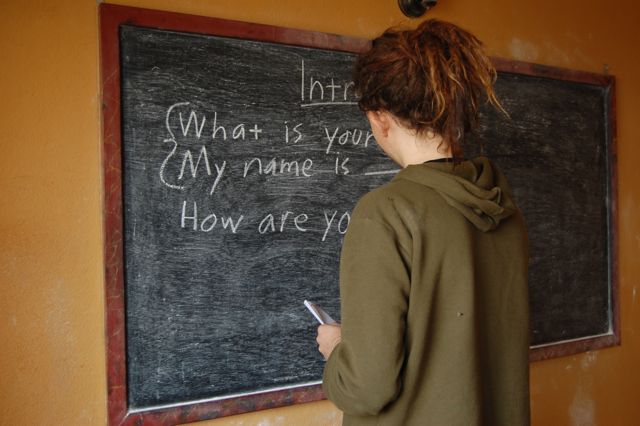 Intr
What is your
My name is ___
How are yo